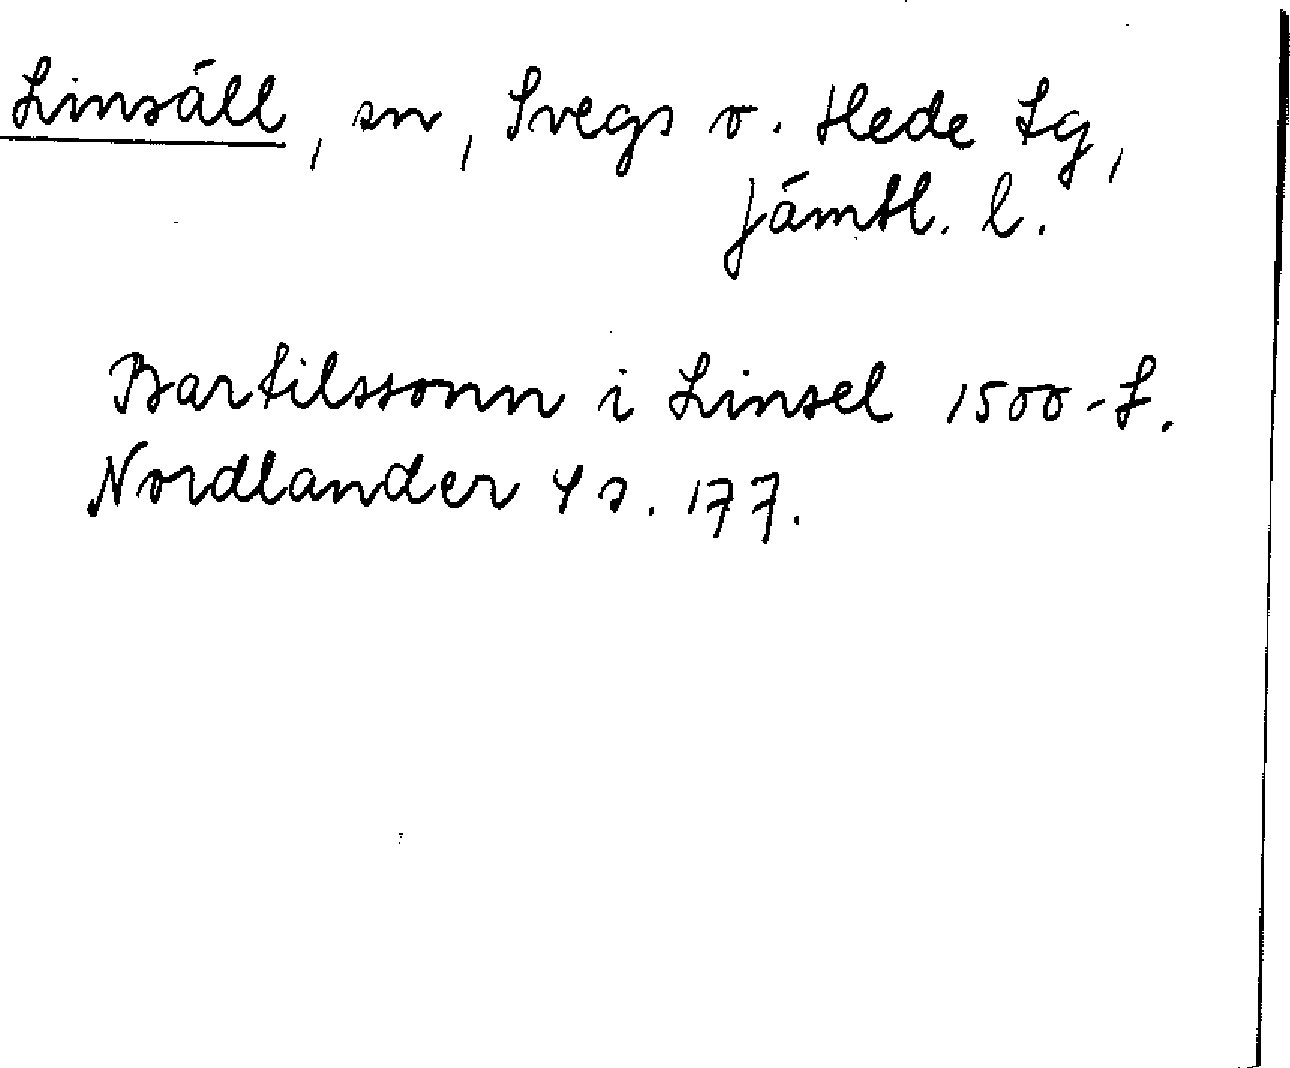 Linsäll, sn, Svegs o. Hede tg,
Jämtl. l.
Bartilssonn i Linsel 1500-t.
Nordlander 4 s. 177.